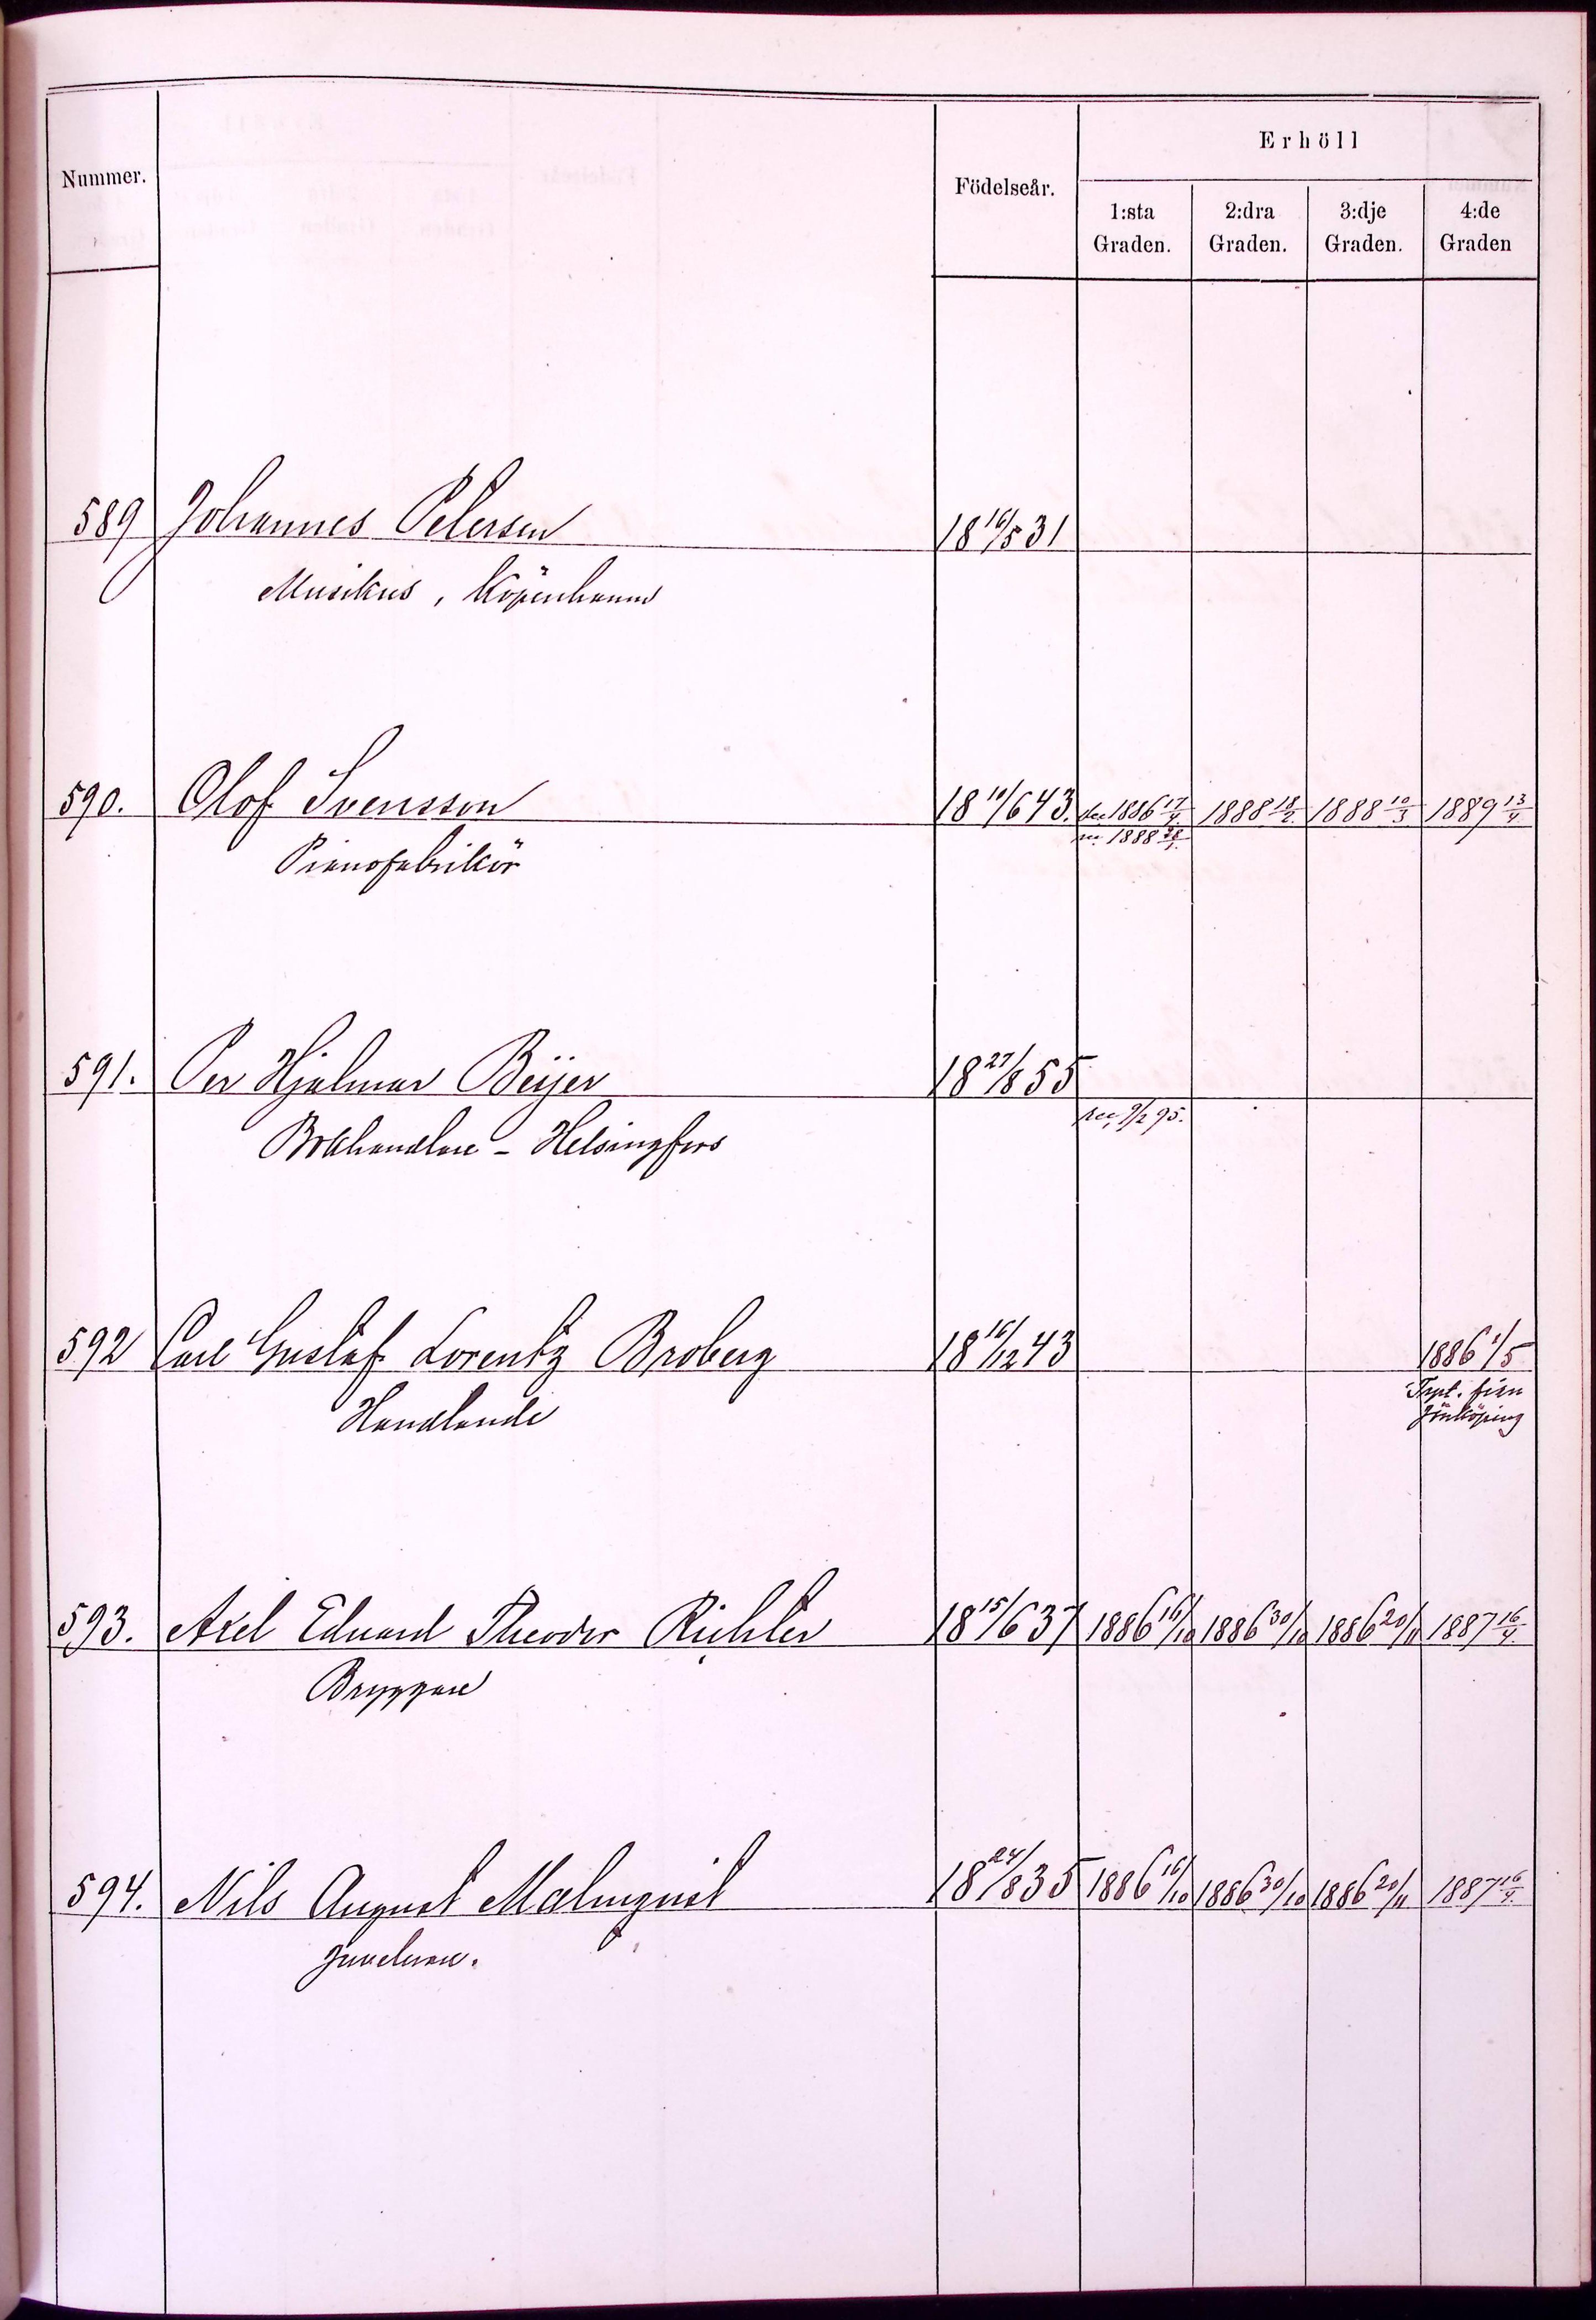 Nummer.
Födelseår.
Erhöll
1:sta Graden.
2:dra Graden.
3:dje Graden.
4:de Graden
589 Johannes Petersen 18 16/5 31
Musikus, Köpenhamn
590. Olof Svensson 18 10/6 43. 1886 17/4 1888 18/2 1888 10/3 1889 13/4
1888 28/1.
Pianofabrikör
591. Per Hjalmar Beijer 18 27/8 55
rec, 9/2 95.
Bokhandlare - Helsingfors
592 Carl Gustaf Lorentz Broberg 18 16/12 43 1886 1/5
Handlande
Trpt. från
Jönköping
593. Axel Eduard Theodor Richter 18 15/6 37 1886 16/10 1886 30/10 1886 20/11 1887 16/4.
Bryggare
594. Nils August Malmquist 18 24/8 35 1886 16/10 1886 30/10 1886 20/11 1887 16/4.
Juvelerare.